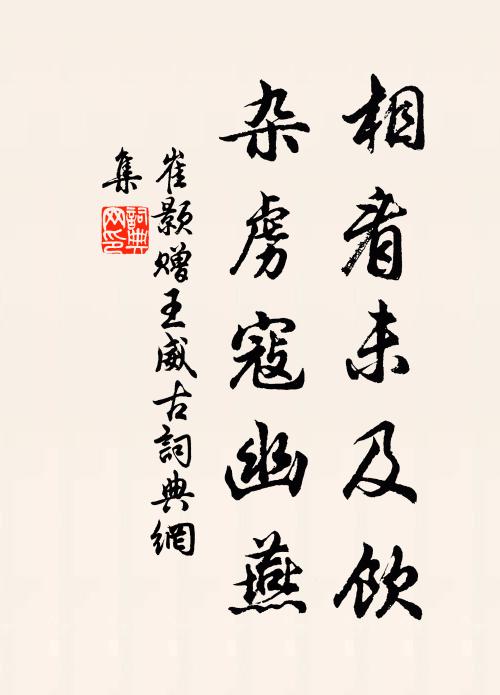 相看未及饮
杂虏寇幽燕
崔颢赠王威古詞典網
集
詞典网印